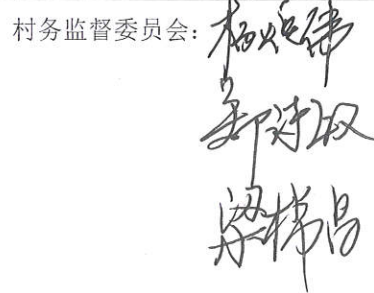 村务监督委员会：杨焕伟
郑诗取
梁梯昌